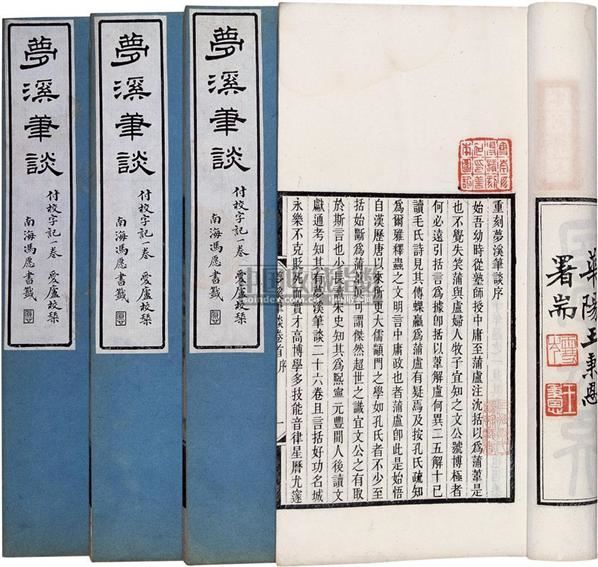 夢溪筆談
付校字記一卷 愛廬校栞
南海馮愿書籤
夢溪筆談
付校字記一卷 愛廬校栞
南海馮愿書籤
夢溪筆談
付校字記一卷 愛廬校栞
南海馮愿書籤
華陽王秉恩
署耑
重刻夢溪筆談序
始吾幼時從塾師授中庸至蒲盧注沈括以爲蒲葦是
也不覺失笑蒲與盧婦人牧子宜知之文公號博極者
何必遠引括言爲據卽括以葦解盧何異二五解十已
讀毛氏詩見其傳螺蠃爲蒲盧有疑焉及按孔氏疏知
爲爾雅釋蟲之文明言中庸政也者蒲盧卽此是始悟
自漢歷唐以來所更大儒顓門之學如孔氏者不少至
括始斷爲蒲葦可謂傑然超世之識宜文公之有取
於斯言也長朱史知其爲熙寧元豐閒人後讀文
獻通考知其有夢溪筆談二十六卷且言括好功名城
永樂不克貶死而實才高博學多技能音律星曆尤邃
筆談卷首序 一